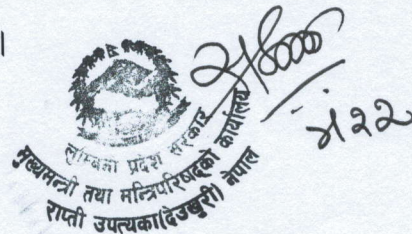 ।
लुम्बिनी प्रदेश सरकार
मुख्यमन्त्री तथा मन्त्रिपरिषद्को कार्यालय
राप्ती उपत्यका(देउखुरी) नेपाल